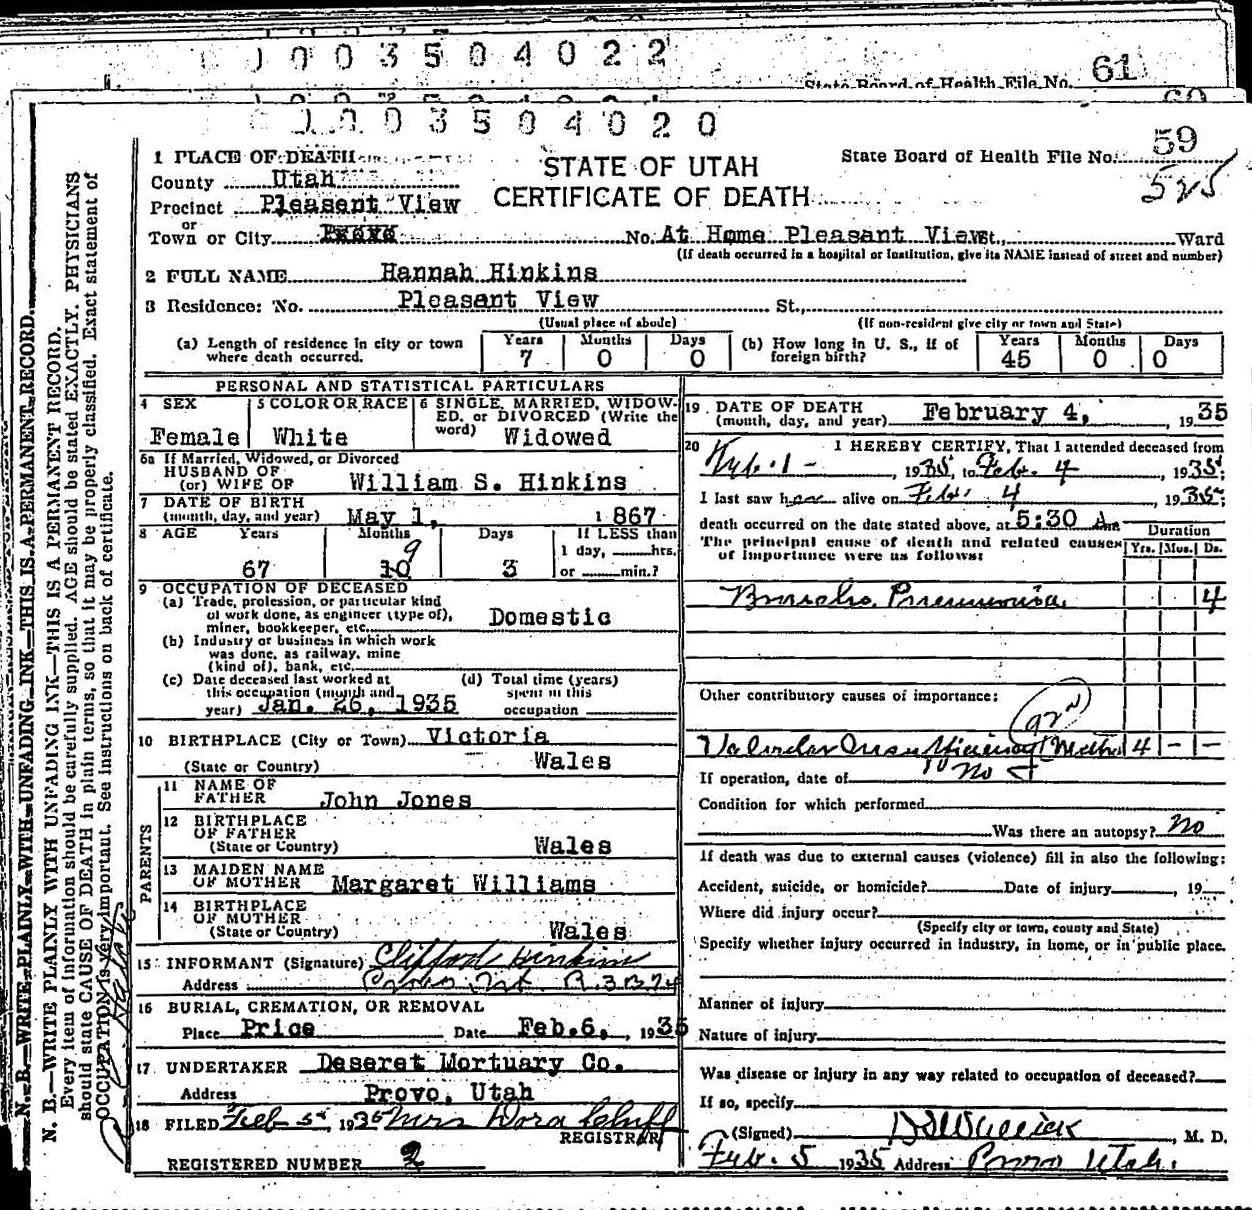 0003504022
State Board of Health File No. 61
60
0003504020
1 PLACE OF DEATH
STATE OF UTAH
CERTIFICATE OF DEATH
State Board of Health File No. 59
525
County Utah
Precinct Pleasent View
or
Town or City Provo No. At Home Pleasant View St., Ward
(If death occurred in a hospital or institution, give its NAME instead of street and number)
2 FULL NAME Hannah Hinkins
3 Residence: No. Pleasant View St.,
(Usual place of abode) (If non-resident give city or town and State)
(a) Length of residence in city or town where death occurred. Years 7 Months 0 Days 0
(b) How long in U. S., if of foreign birth? Years 45 Months 0 Days 0
PERSONAL AND STATISTICAL PARTICULARS
4 SEX Female
5 COLOR OR RACE White
6 SINGLE, MARRIED, WIDOWED, or DIVORCED (Write the word) Widowed
6a If Married, Widowed, or Divorced
HUSBAND OF
(or) WIFE OF William S. Hinkins
7 DATE OF BIRTH
(month, day, and year) May 1, 1867
8 AGE Years 67 Months 10 9 Days 3
If LESS than
1 day, hrs.
or min.?
9 OCCUPATION OF DECEASED
(a) Trade, profession, or particular kind
of work done, as engineer (type of),
miner, bookkeeper, etc. Domestic
(b) Industry or business in which work
was done, as railway, mine
(kind of), bank, etc.
(c) Date deceased last worked at
this occupation (month and
year) Jan. 26, 1935
(d) Total time (years)
spent in this
occupation
10 BIRTHPLACE (City or Town) Victoria
(State or Country) Wales
PARENTS
11 NAME OF
FATHER John Jones
12 BIRTHPLACE
OF FATHER
(State or Country) Wales
13 MAIDEN NAME
OF MOTHER Margaret Williams
14 BIRTHPLACE
OF MOTHER
(State or Country) Wales
15 INFORMANT (Signature) Clifford Hinkins
Address Provo Ut. R.3 B 74
16 BURIAL, CREMATION, OR REMOVAL
Place Price Date Feb.6, 1935
17 UNDERTAKER Deseret Mortuary Co.
Address Provo, Utah
18 FILED Feb 5, 1935 Mrs Dora Cluff
REGISTRAR
REGISTERED NUMBER 2
19 DATE OF DEATH
(month, day, and year) February 4, 1935
20 I HEREBY CERTIFY, That I attended deceased from
Feb. 1 - 1935, to Feb. 4 1935,
I last saw her alive on Feb. 4 1935,
death occurred on the date stated above, at 5:30 A m
The principal cause of death and related causes
of importance were as follows:
Duration
Yrs. Mos. Ds.
Broncho Pneumonia 4
Other contributory causes of importance:
Valvular Insufficiency (Mitral 4 - -
If operation, date of no
Condition for which performed
Was there an autopsy? no
If death was due to external causes (violence) fill in also the following:
Accident, suicide, or homicide? Date of injury , 19
Where did injury occur?
(Specify city or town, county and State)
Specify whether injury occurred in industry, in home, or in public place.
Manner of injury
Nature of injury
Was disease or injury in any way related to occupation of deceased?
If so, specify
(Signed) , M. D.
Feb. 5 1935 Address Provo Utah.
N. B.—WRITE PLAINLY WITH UNFADING INK—THIS IS A PERMANENT RECORD.
N. B.—WRITE PLAINLY WITH UNFADING INK—THIS IS A PERMANENT RECORD.
Every item of information should be carefully supplied. AGE should be stated EXACTLY. PHYSICIANS
should state CAUSE OF DEATH in plain terms, so that it may be properly classified. Exact statement of
OCCUPATION is very important. See instructions on back of certificate.